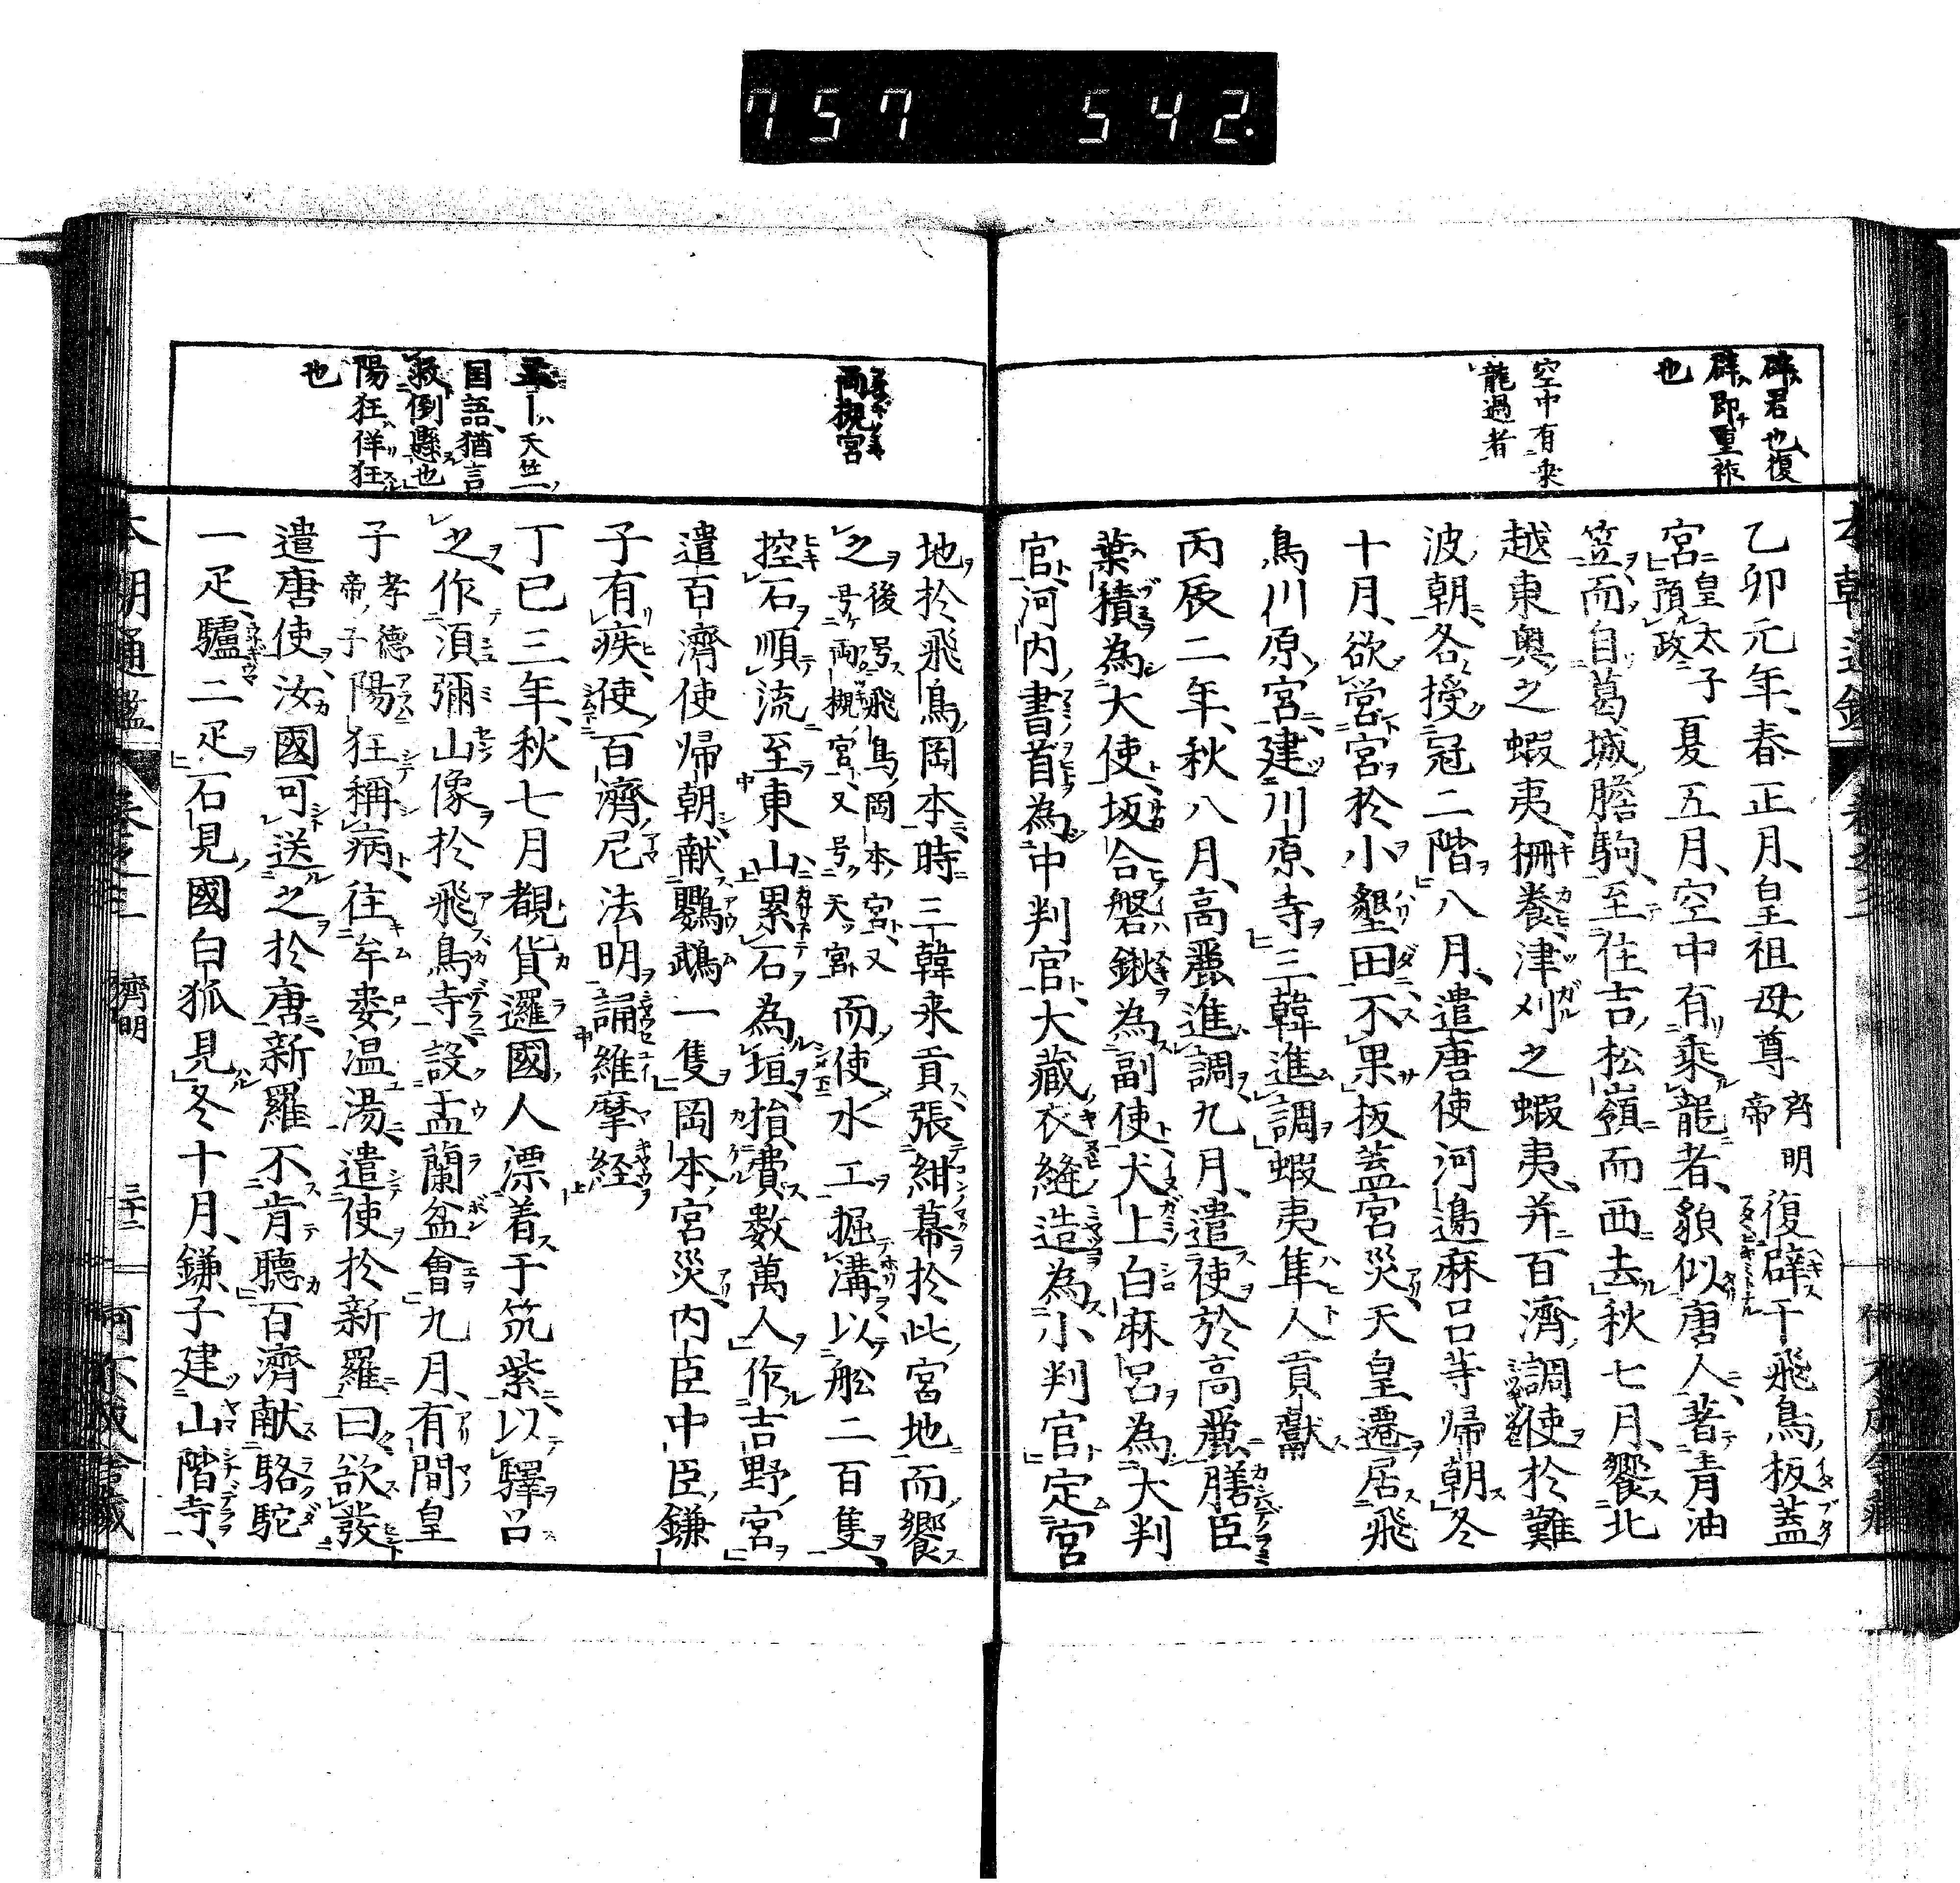 757 542.
辟君也復
辟即重祚
也
空中有乗
龍過者
乙卯元年春正月皇祖母尊 齊明帝 復辟于飛鳥板蓋
宮 皇太子預政 夏五月空中有乘龍者貌似唐人著青油
笠而自葛城膽駒至住吉松嶺而西去秋七月饗北
越東奥之蝦夷柵養津刈之蝦夷并百濟調使於難
波朝各授冠二階八月遣唐使河邉麻呂等帰朝冬
十月欲営宮於小墾田不果板蓋宮災天皇遷居飛
鳥川原宮建川原寺三韓進調蝦夷隼人貢獻
丙辰二年秋八月高麗進調九月遣使於高麗膳臣
葉積為大使坂合磐鍬為副使犬上白麻呂為大判
官河内書首為中判官大藏衣縫造為小判官定宮
両槻宮
地於飛鳥岡本時三韓来貢張紺幕於此宮地而饗
之 後号飛鳥岡本宮又号両槻宮又号天宮 而使水工掘溝以舩二百隻
控石順流至東山累石為垣損費數萬人作吉野宮
遣百濟使帰朝献鸚鵡一隻岡本宮災内臣中臣鎌
子有疾使百濟尼法明誦維摩経
盂―天竺
国語猶言
救倒懸也
陽狂佯狂
也
丁巳三年秋七月覩貨邏國人漂着于筑紫以驛召
之作須彌山像於飛鳥寺設盂蘭盆會九月有間皇
子 孝德帝子 陽狂稱病往牟婁温湯遣使於新羅曰欲發
遣唐使汝國可送之於唐新羅不肯聴百濟献駱駝
一疋驢二疋石見國白狐見冬十月鎌子建山階寺
本朝通鑑 卷之三 齊明 三十二